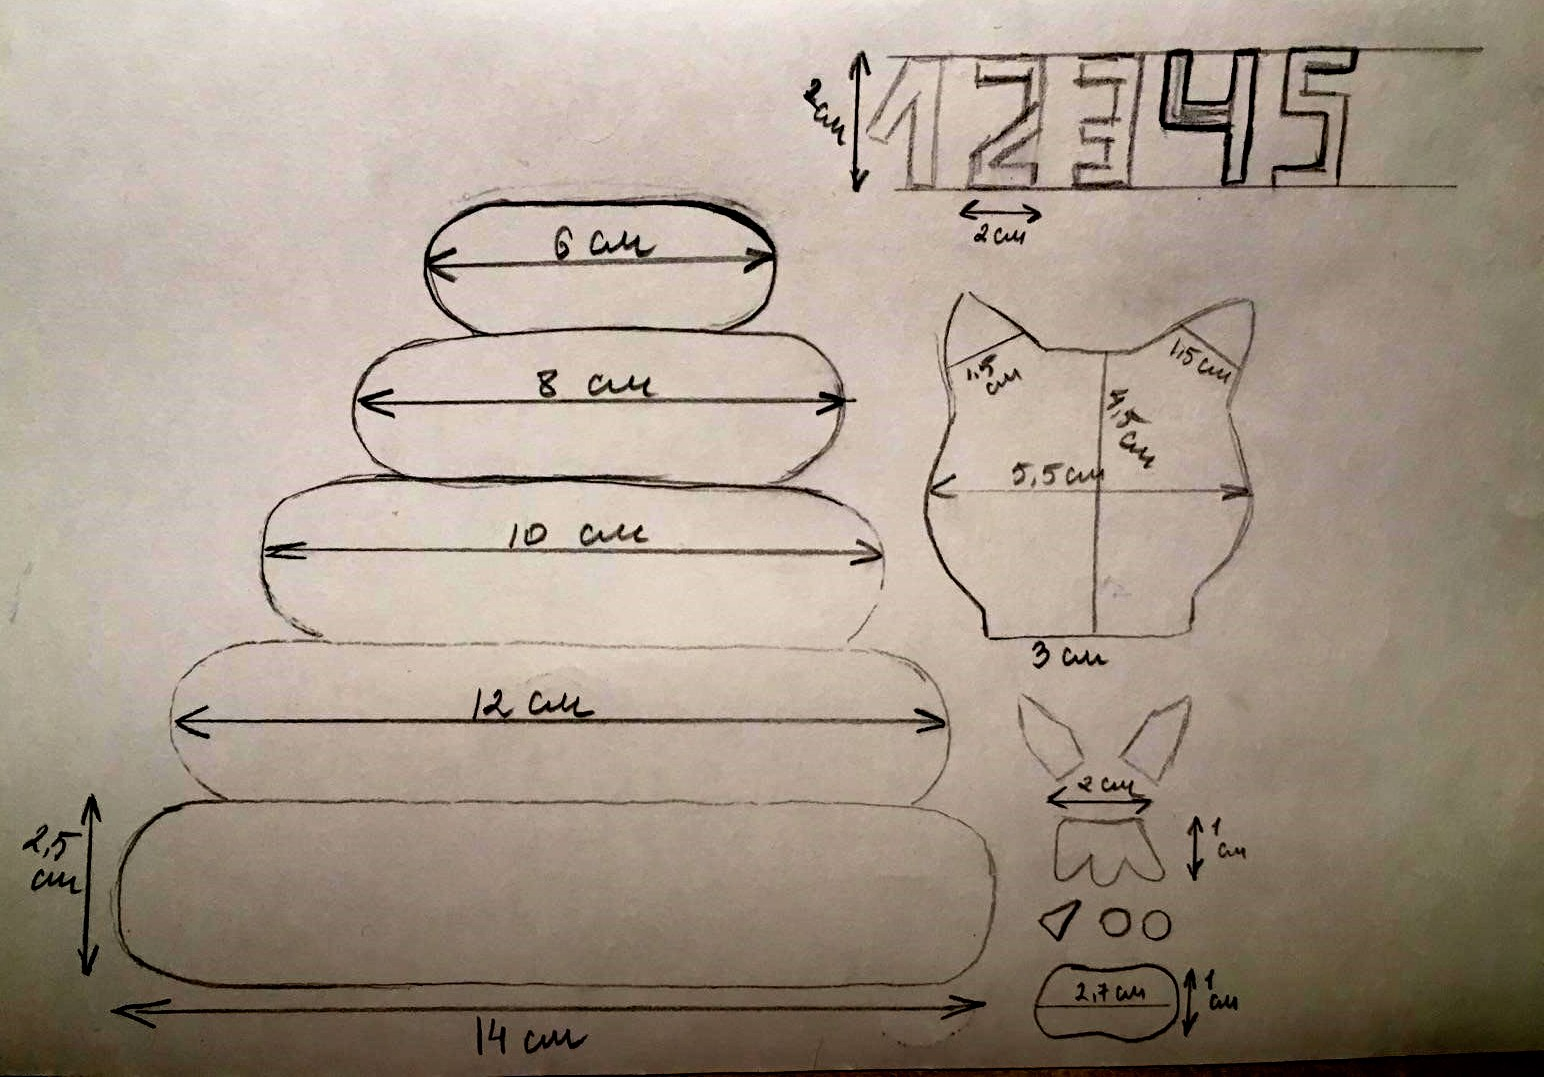 1 2 3 4 5
2 см
2 см
6 см
8 см
10 см
12 см
2,5
см
14 см
1,5
см
1,5 см
4,5
см
5,5 см
3 см
2 см
1
см
2,7 см
1
см